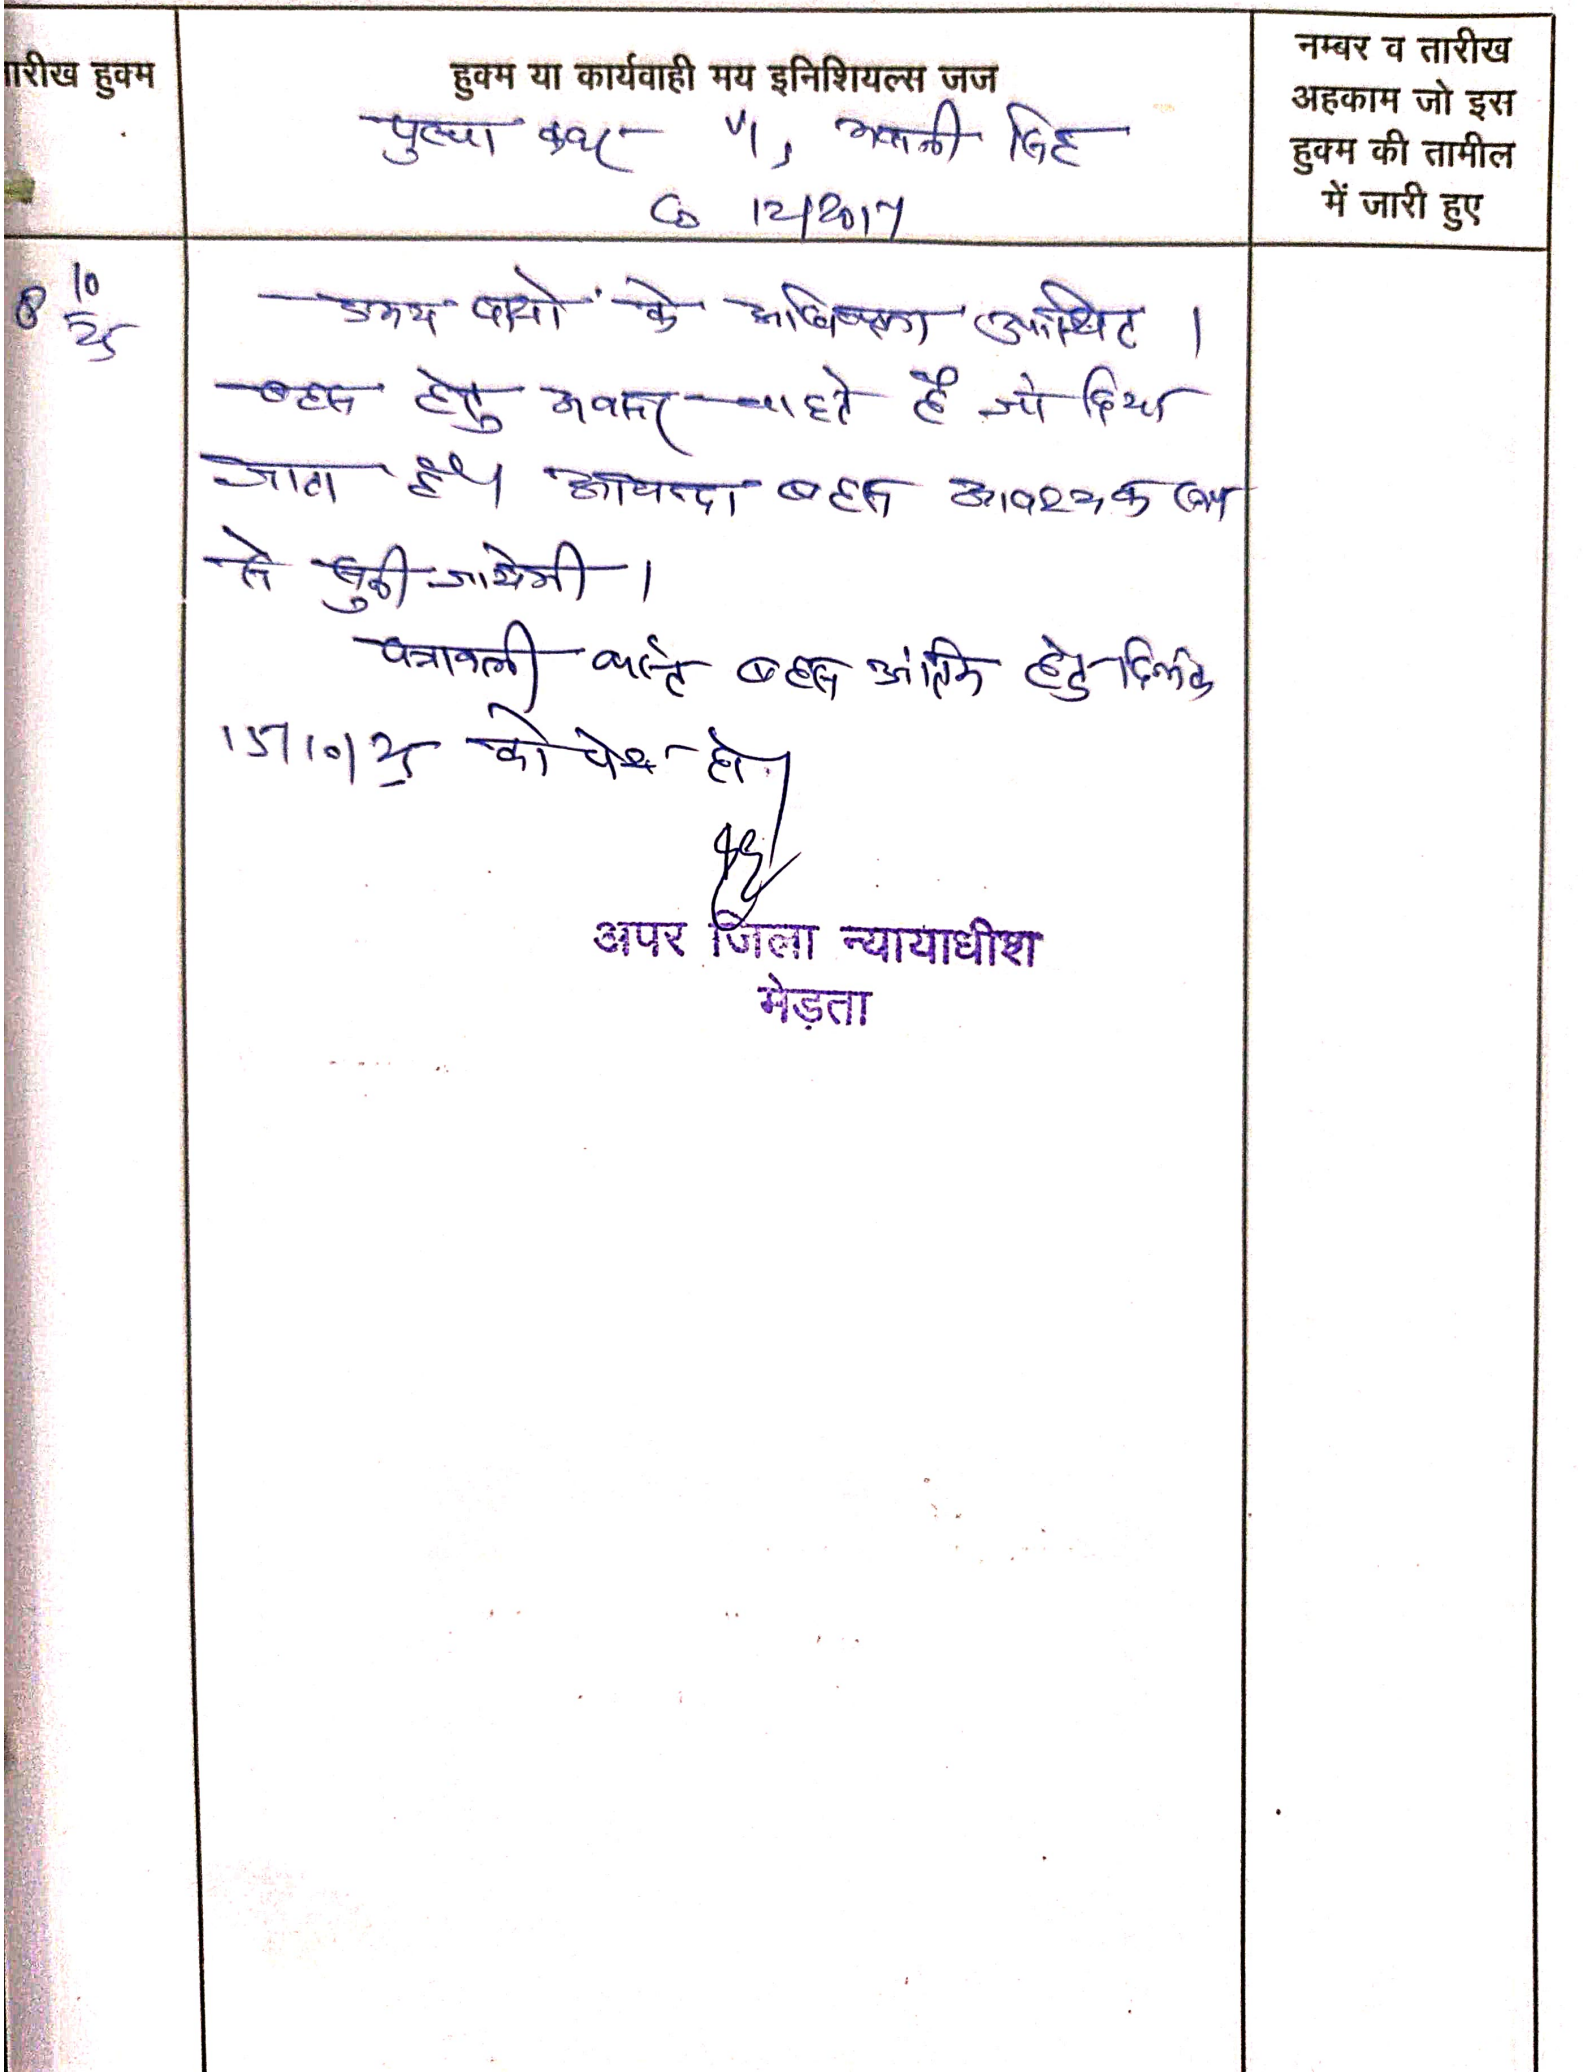 तारीख हुक्म
हुक्म या कार्यवाही मय इनिशियल्स जज
नम्बर व तारीख
अहकाम जो इस
हुक्म की तामील
में जारी हुए
सिंह
12/2017
8 10/25
उभय पक्षों के अधिवक्ता उपस्थित ।
बहस हेतु अवसर चाहते है जो दिया
जाता है। आयन्दा बहस आवश्यक रूप
से सुनी जायेगी ।
पत्रावली वास्ते बहस अंतिम हेतु दिनांक
15/10/25 को पेश हो।
अपर जिला न्यायाधीश
मेड़ता